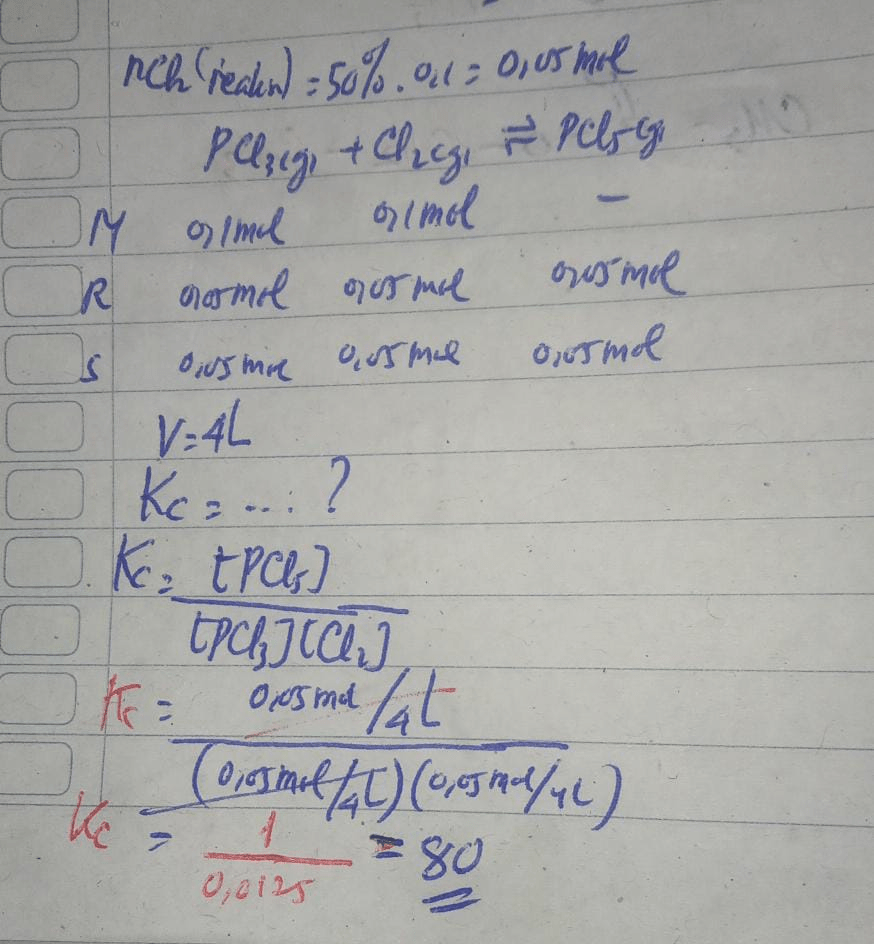 nCl2 (reaksi) = 50% . 0,1 = 0,05 mol
PCl3(g) + Cl2(g) ⇌ PCl5(g)
M 0,1 mol 0,1 mol -
R 0,05 mol 0,05 mol 0,05 mol
S 0,05 mol 0,05 mol 0,05 mol
V = 4L
Kc = ....?
Kc = [PCl5]
[PCl3][Cl2]
Kc = 0,05 mol/4L
(0,05 mol/4L)(0,05 mol/4L)
Kc = 1 = 80
0,0125